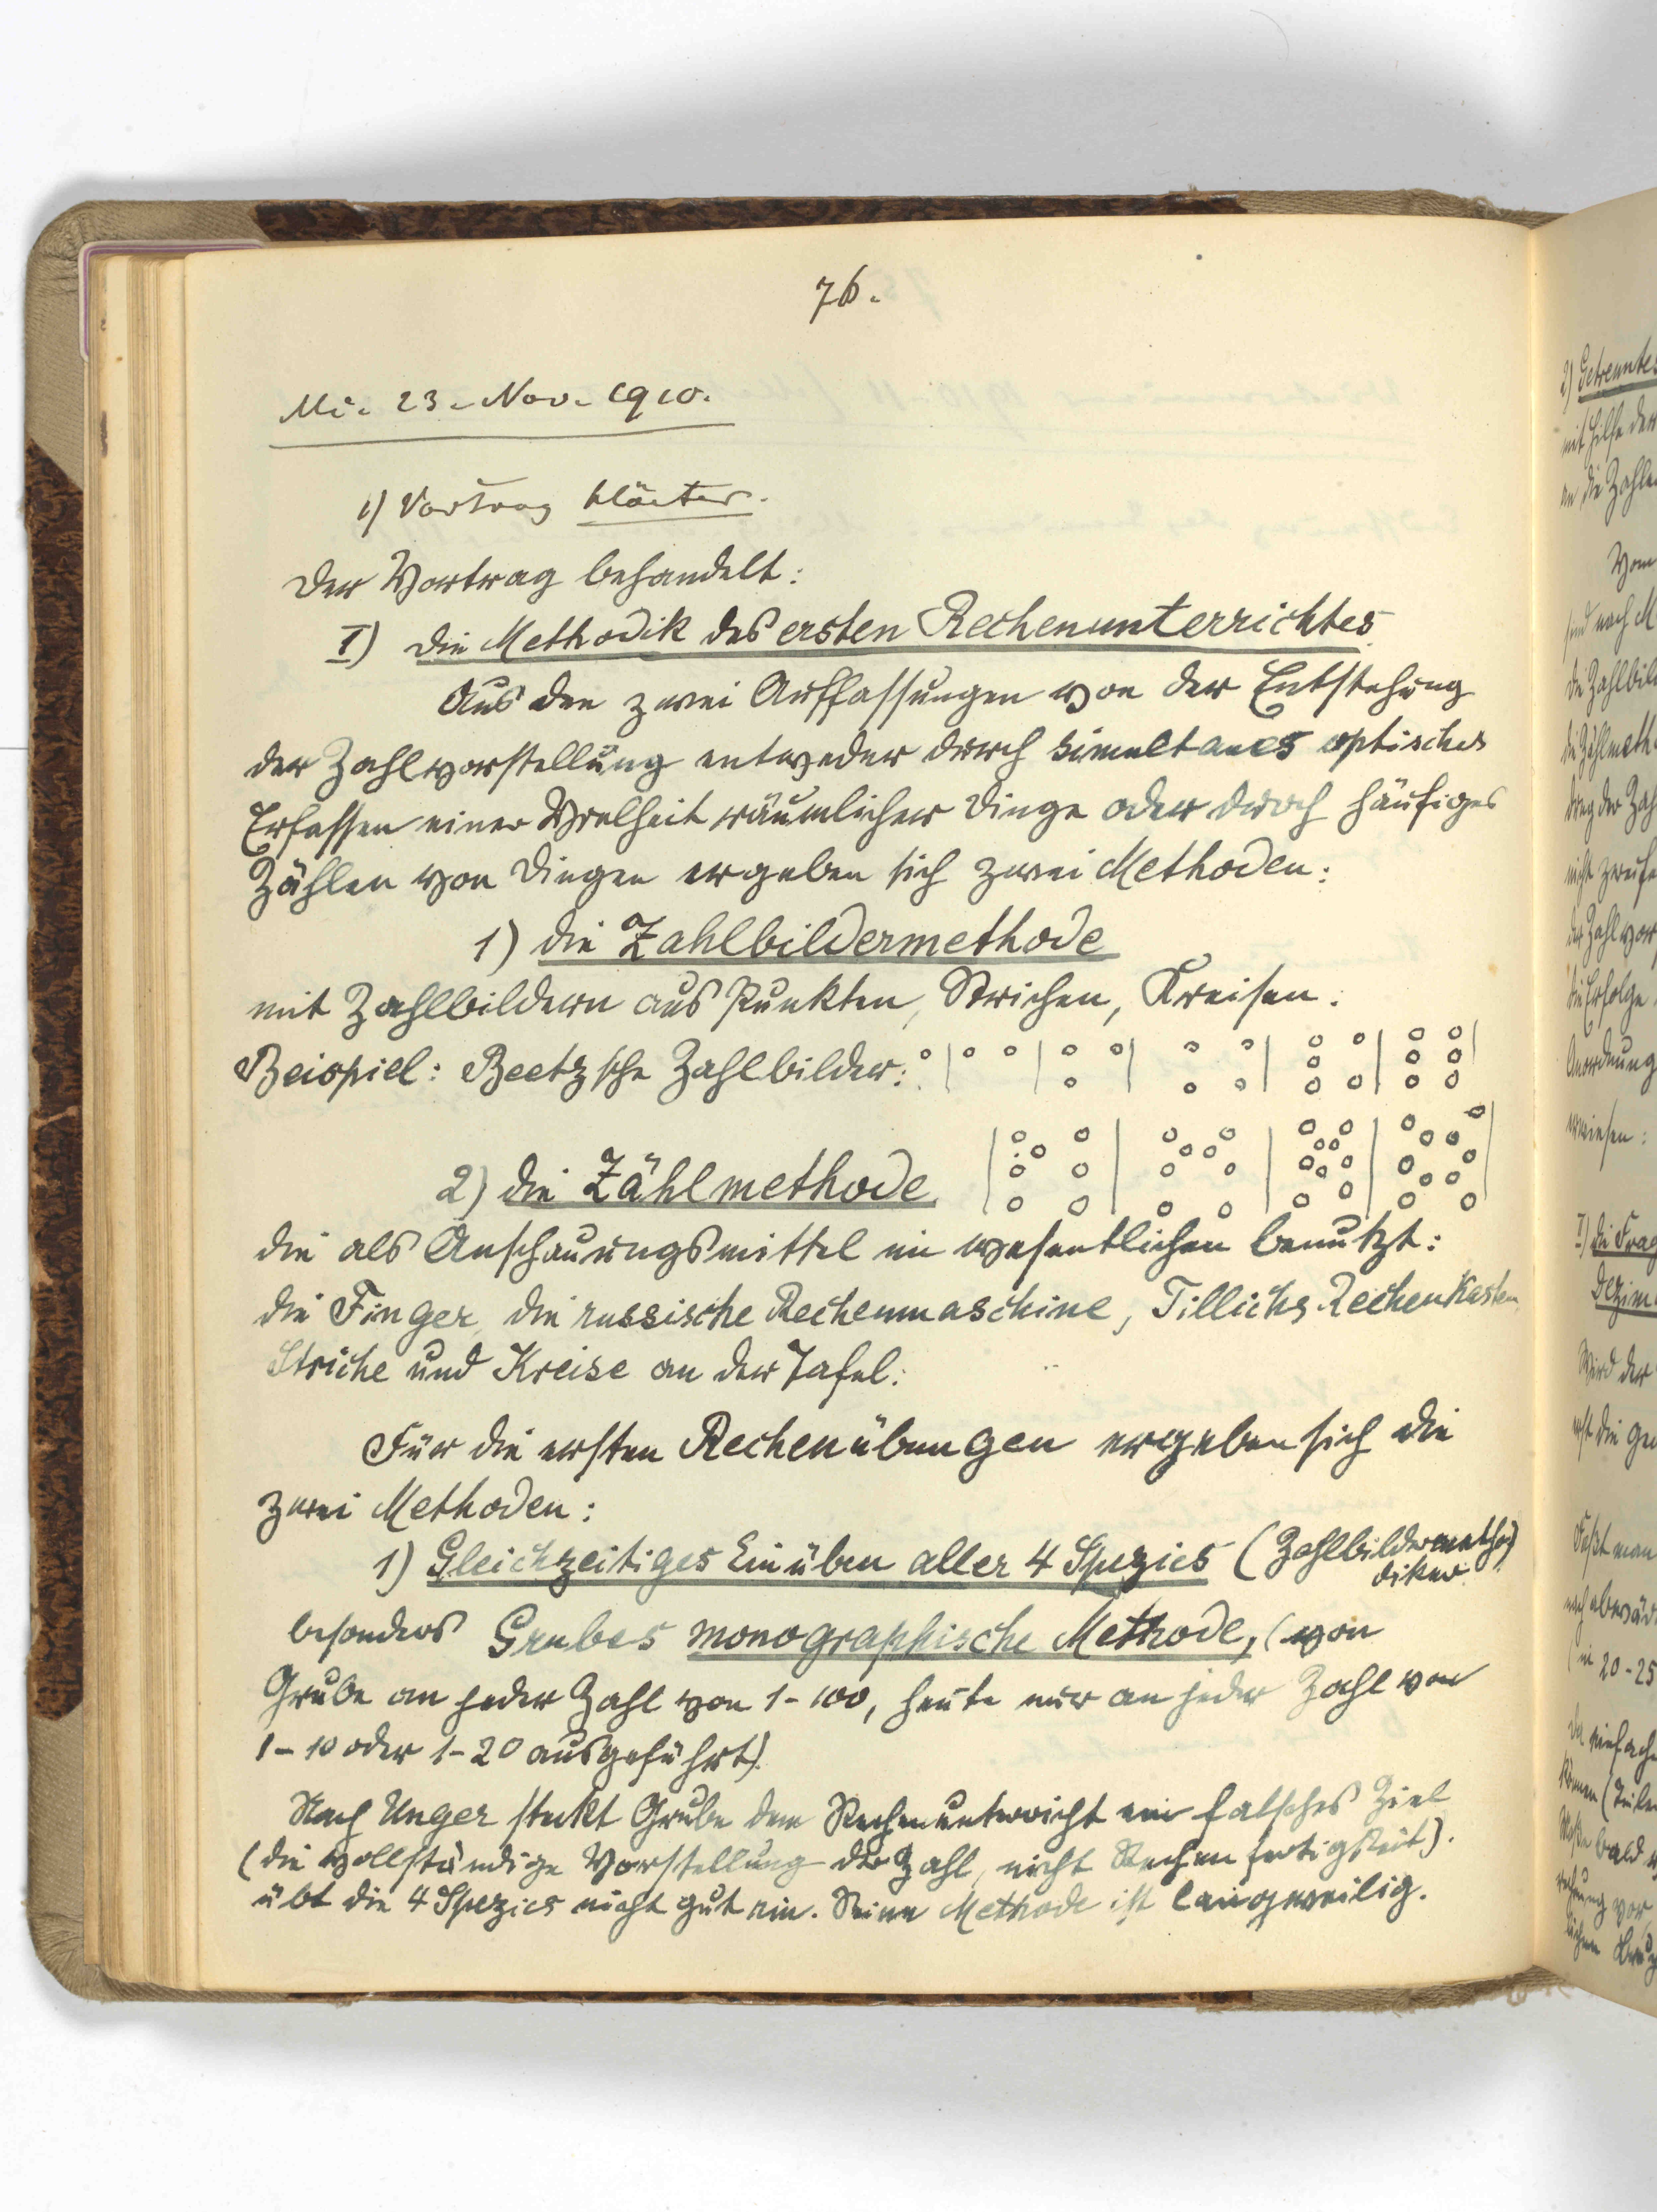 76.
Mi. 23. Nov. 1910.
1) Vortrag
Der Vortrag behandelt:
I) Die Methodik des ersten Rechenunterrichtes
Aus den zwei Auffassungen von der Entstehung
der Zahlvorstellung entweder durch simultanes optisches
Erfassen einer Vielheit räumlicher Dinge oder durch häufiges
Zählen von Dingen ergeben sich zwei Methoden:
1) die Zahlbildermethode
mit Zahlbildern aus Punkten, Strichen, Kreisen.
Beispiel: Beetzsche Zahlbilder:
2) die Zählmethode
die als Anschauungsmittel im wesentlichen benutzt:
die Finger, die russische Rechenmaschine, Tillichs Rechenkasten
Striche und Kreise an der Tafel.
Für die ersten Rechenübungen ergeben sich die
zwei Methoden:
1) Gleichzeitiges Einüben aller 4 Spezies (Zahlbildermetho
diker)
besonders Grubes monographische Methode, (von
Grube an jeder Zahl von 1-100, heute nur an jeder Zahl von
1-10 oder 1-20 ausgeführt).
Nach Unger steckt Grube dem Rechenunterricht ein falsches Ziel
(die vollständige Vorstellung der Zahl, nicht Rechenfertigkeit).
übt die 4 Spezies nicht gut ein. Seine Methode ist langweilig.